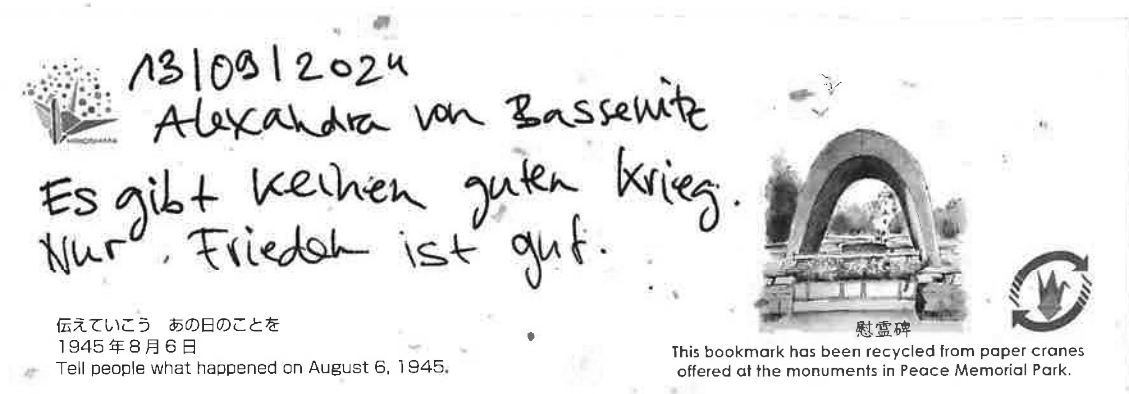 13/09/2024
Alexandra von Bassewitz
Es gibt keinen guten Krieg.
Nur Frieden ist gut.
伝えていこう あの日のことを
1945年8月6日
Tell people what happened on August 6, 1945.
慰霊碑
This bookmark has been recycled from paper cranes
offered at the monuments in Peace Memorial Park.